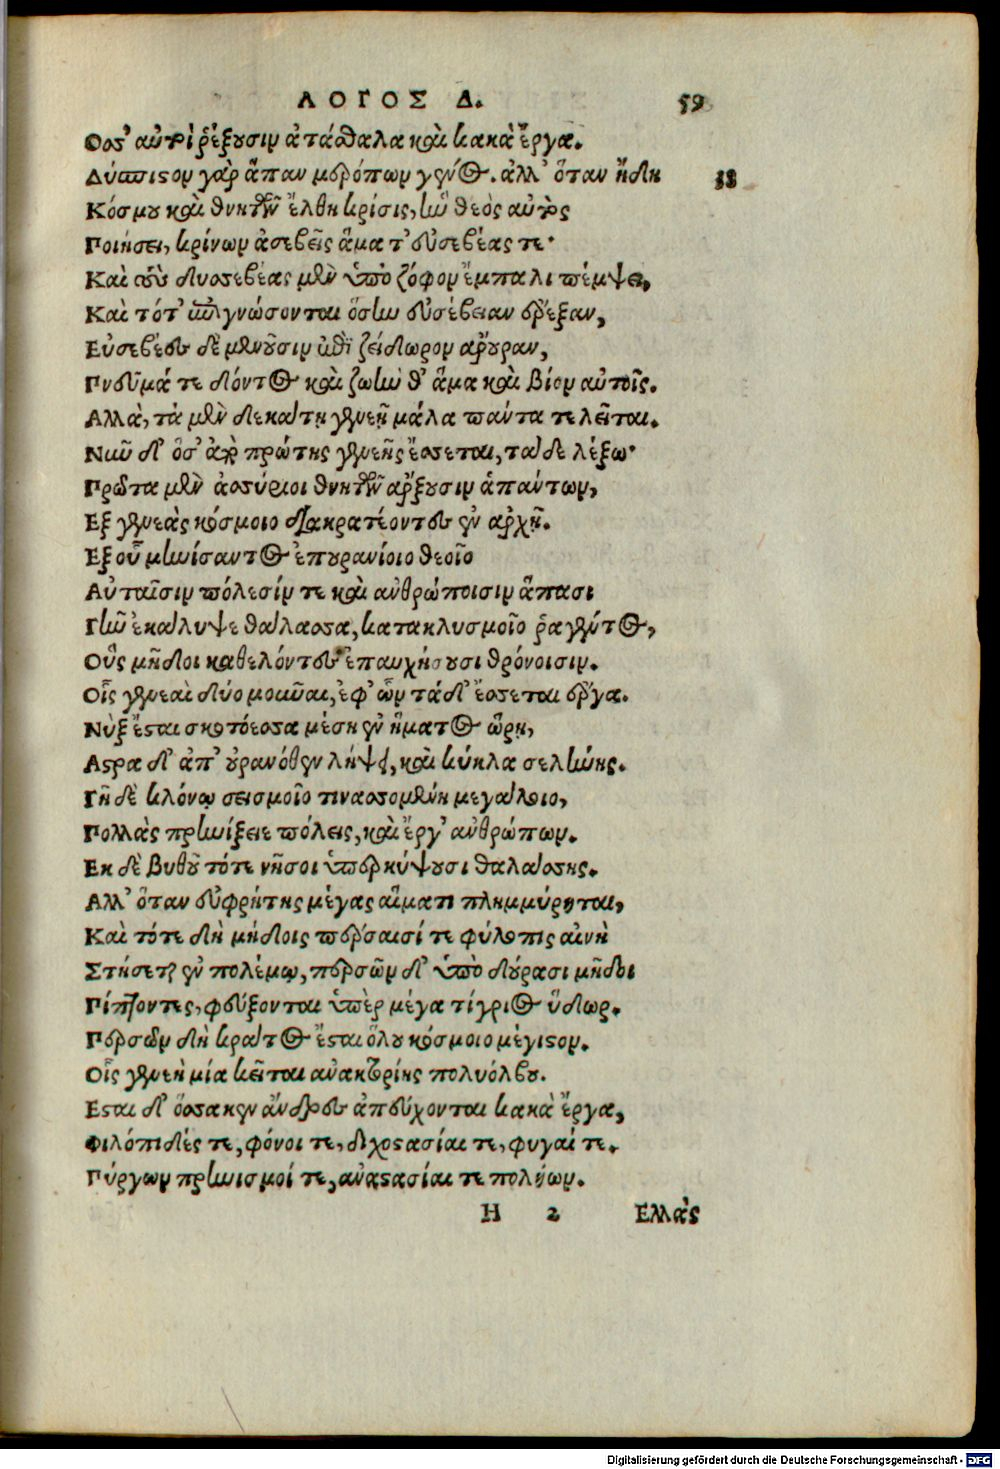 ΛΟΓΟΣ Δ. 59
Θος' αὐτοὶ ῥέξουσιν ἀτάσθαλα καὶ κακὰ ἔργα.
Δύσπιστον γὰρ ἅπαν μερόπων γένος. ἀλλ' ὅταν ἤδη 38
Κόσμου καὶ θνητῶν ἔλθη κρίσις, ἣν θεὸς αὐτὸς
Ποιήσει, κρίνων ἀσεβεῖς ἅμα τ' εὐσεβέας τε·
Καὶ τοὺς δυσσεβέας μὲν ὑπὸ ζόφον ἔμπαλι πέμψει,
Καὶ τότ' ἐπιγνώσονται ὅσην εὐσέβειαν ἔρεξαν,
Εὐσεβέες δὲ μενοῦσιν ἐπὶ ζείδωρον ἄρουραν,
Πνεῦμά τε δόντος καὶ ζωὴν θ' ἅμα καὶ βίον αὐτοῖς.
Αλλὰ, τὰ μὲν δεκάτη γενεῇ μάλα πάντα τελεῖται.
Νῦν δ' ὅσ' ἀπὸ πρώτης γενεῆς ἔσσεται, τάδε λέξω·
Πρῶτα μὲν ἀσσύριοι θνητῶν ἄρξουσιν ἁπάντων,
Εξ γενεὰς κόσμοιο διακρατέοντες ἐν ἀρχῇ.
Εξ οὗ μηνίσαντος ἐπουρανίοιο θεοῖο
Αὐταῖσιν πόλεσίν τε καὶ ἀνθρώποισιν ἅπασι
Γῆν ἐκάλυψε θάλασσα, κατακλυσμοῖο ῥαγέντος,
Οὓς μῆδοι καθελόντες ἐπαυχήσουσι θρόνοισιν.
Οἷς γενεαὶ δύο μοῦναι, ἐφ' ὧν τάδ' ἔσσεται ἔργα.
Νὺξ ἔσται σκοτόεσσα μέση ἐν ἤματος ὥρῃ,
Αστρα δ' ἀπ' οὐρανόθεν λήψει, καὶ κύκλα σελήνης.
Γῆ δὲ κλόνῳ σεισμοῖο τινασσομένη μεγάλοιο,
Πολλὰς πρηνίξειε πόλεις, καὶ ἔργ' ἀνθρώπων.
Εκ δὲ βυθοῦ τότε νῆσοι ὑπερκύψουσι θαλάσσης.
Αλλ' ὅταν εὐφρήτης μέγας αἵματι πλημμύρηται,
Καὶ τότε δὴ μήδοις πέρσαισί τε φύλοπις αἰνὴ
Στήσεται ἐν πολέμῳ, περσῶν δ' ὑπὸ δούρασι μῆδοι
Πίπτοντες, φεύξονται ὑπὲρ μέγα τίγριος ὕδωρ.
Περσῶν δὴ κράτος ἔσται ὅλου κόσμοιο μέγιστον.
Οἷς γενεὴ μία κεῖται ἀνακτορίης πολυόλβου.
Εσται δ' ὅσσα κεν ἄνδρες ἀπεύχονται κακὰ ἔργα,
Φιλόπιδές τε, φόνοι τε, διχοστασίαι τε, φυγαί τε.
Πύργων πρηνισμοί τε, ἀναστασίαι τε πολήων.
Η 2 Ελλὰς
Digitalisierung gefördert durch die Deutsche Forschungsgemeinschaft - DFG